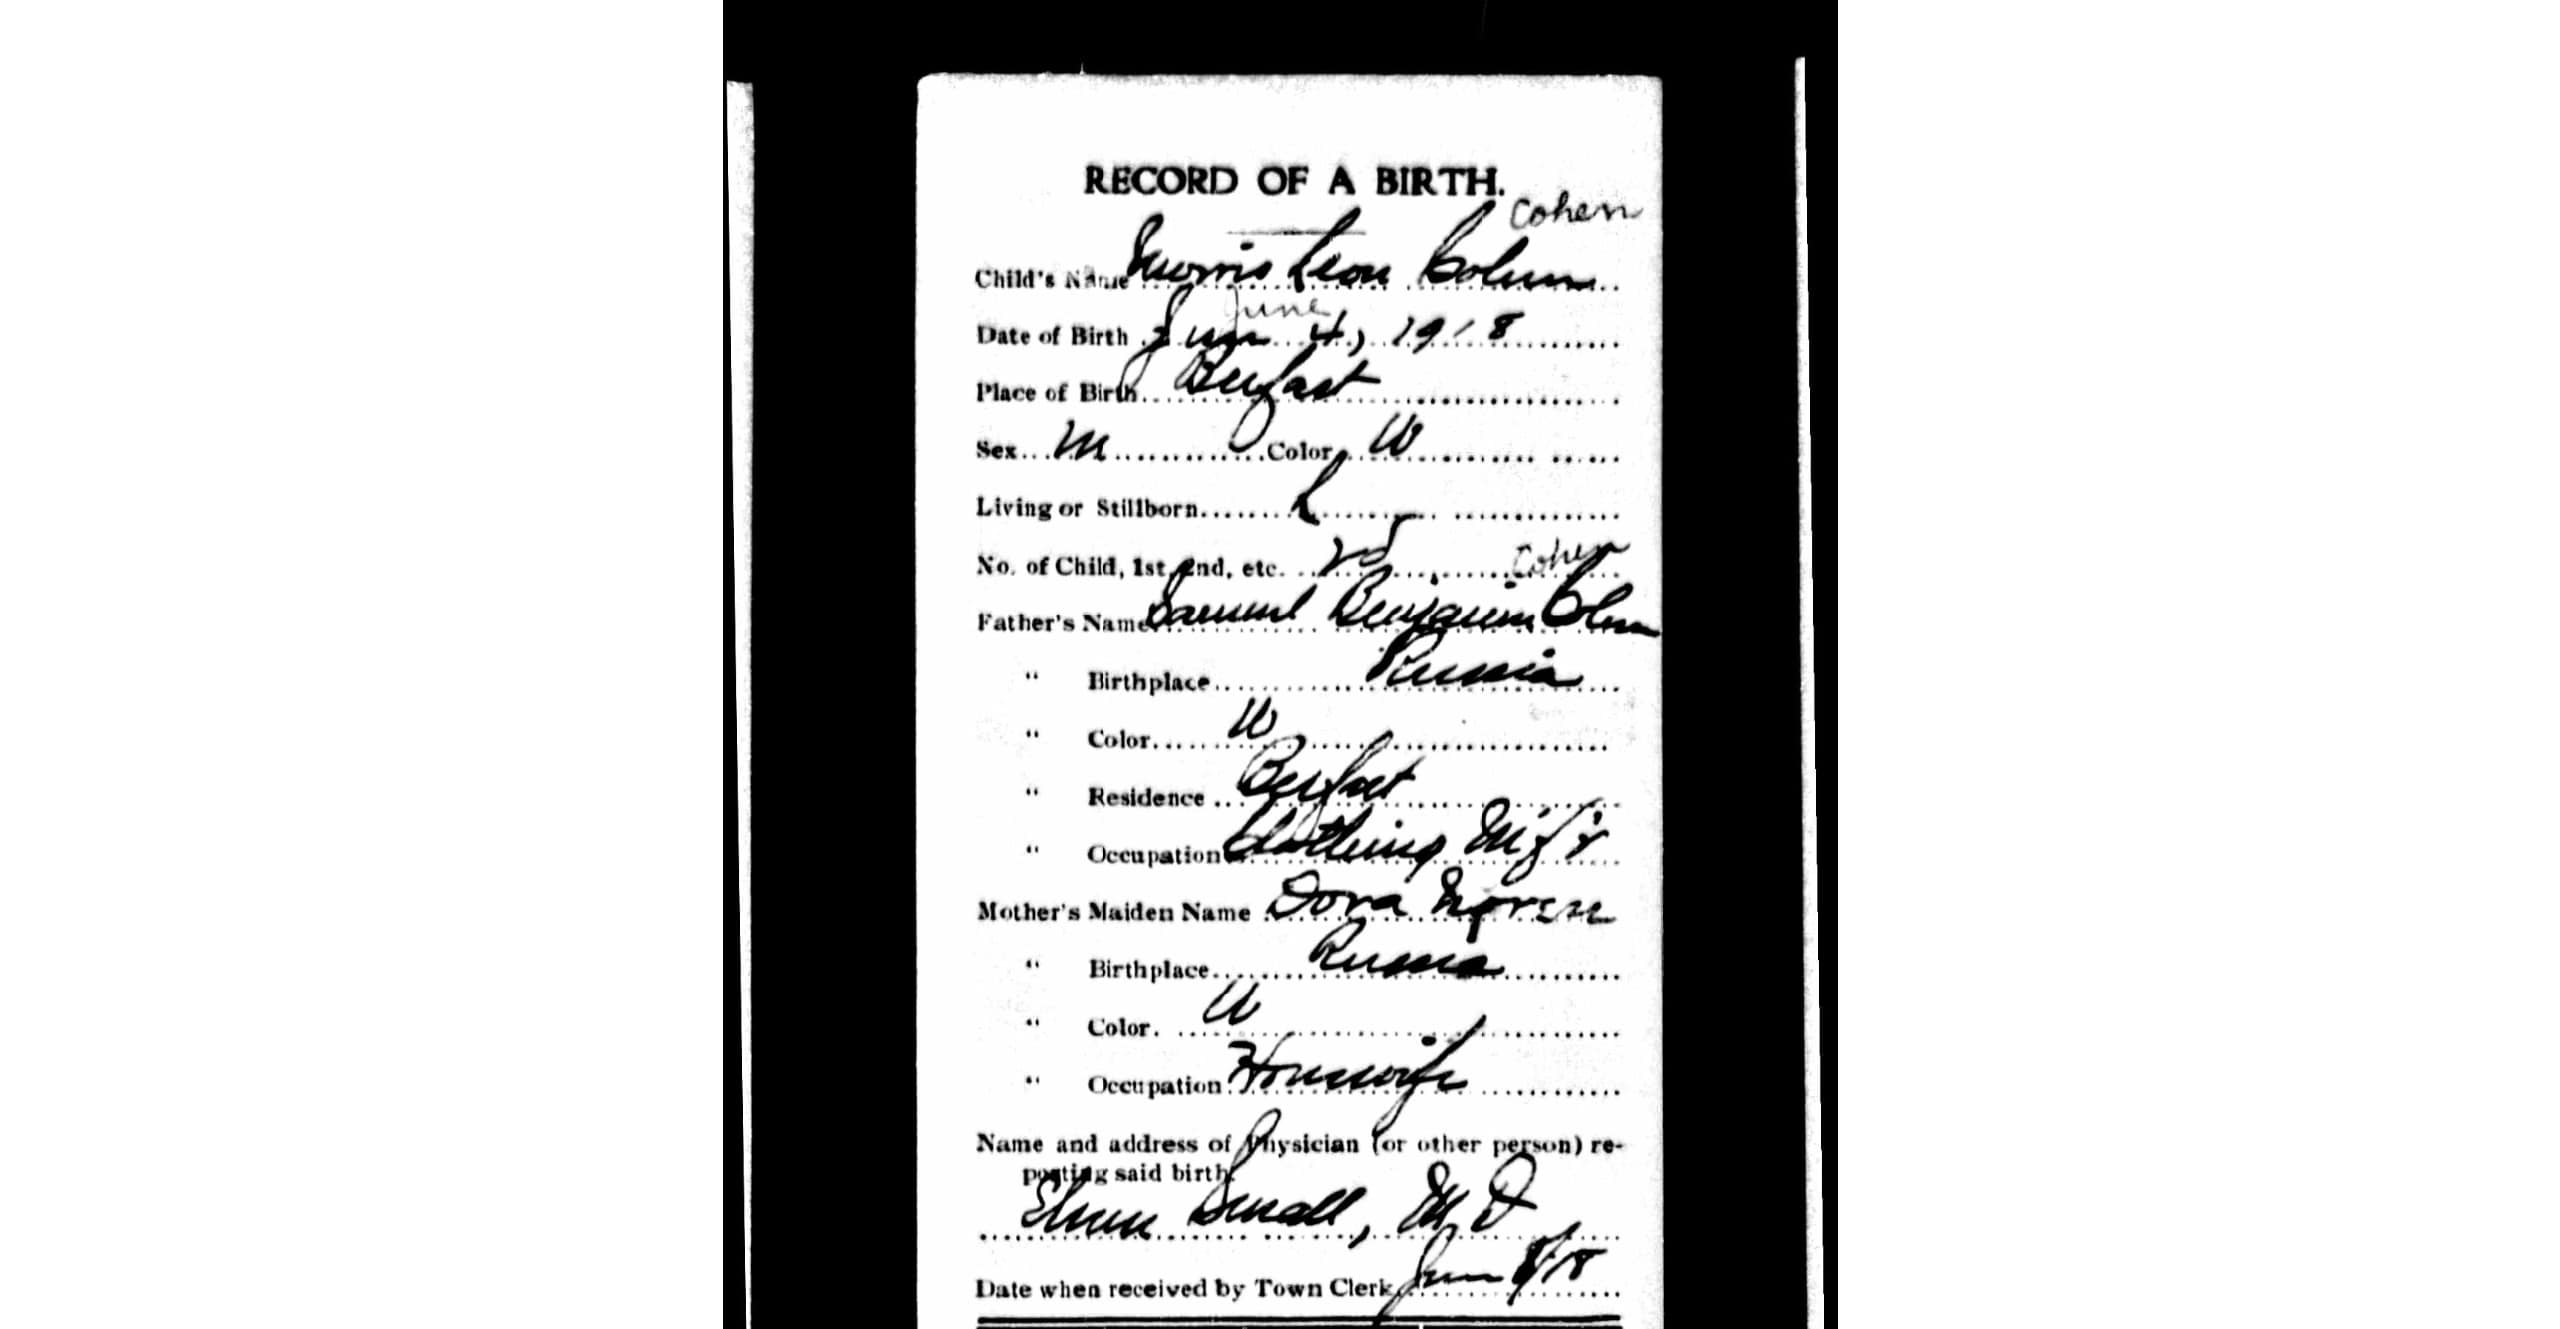 RECORD OF A BIRTH.
Cohen
Child's Name Morris Leon Cohen
June
Date of Birth June 4, 1918
Place of Birth Belfast
Sex M Color W
Living or Stillborn L
No. of Child, 1st, 2nd, etc. 2d
Cohen
Father's Name Samuel Benjamin Cohen
" Birthplace Russia
" Color W
" Residence Belfast
" Occupation Clothing M'f'r
Mother's Maiden Name Dora
" Birthplace Russia
" Color W
" Occupation Housewife
Name and address of Physician (or other person) re-
porting said birth.
Elmer Small, M D
Date when received by Town Clerk June 8/18